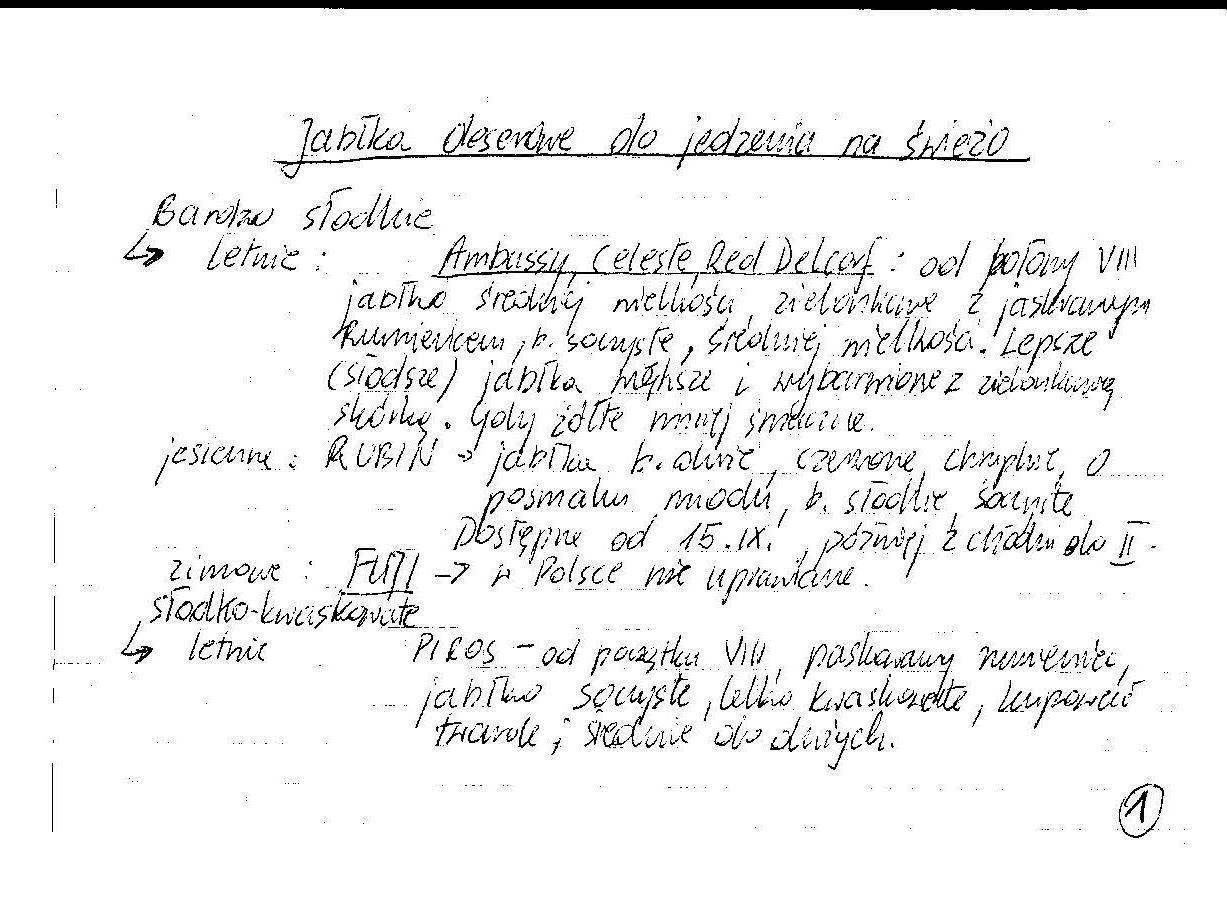 Jabłka deserowe do jedzenia na świeżo
Bardzo słodkie
↳ letnie : Ambassy, Celeste, Red Delcorf : od połowy VIII
jabłko średniej wielkości, zielonkawe z jaskrawym
Rumieńcem, b. soczyste, średniej wielkości. Lepsze
(słodsze) jabłka większe i wybarwione z zielonkawą
skórką. Gdy żółte mniej smaczne.
jesienne : RUBIN → jabłka b. duże, czerwone, chrupkie, o
posmaku miodu, b. słodkie, soczyste
Dostępne od 15.IX., później z chłodni do II.
zimowe : FUJI → w Polsce nie uprawiane.
słodko-kwaskowate
↳ letnie PIROS – od początku VIII, paskowany rumieniec,
jabłko soczyste, lekko kwaskowate, kupować
twarde, średnie do dużych.
1